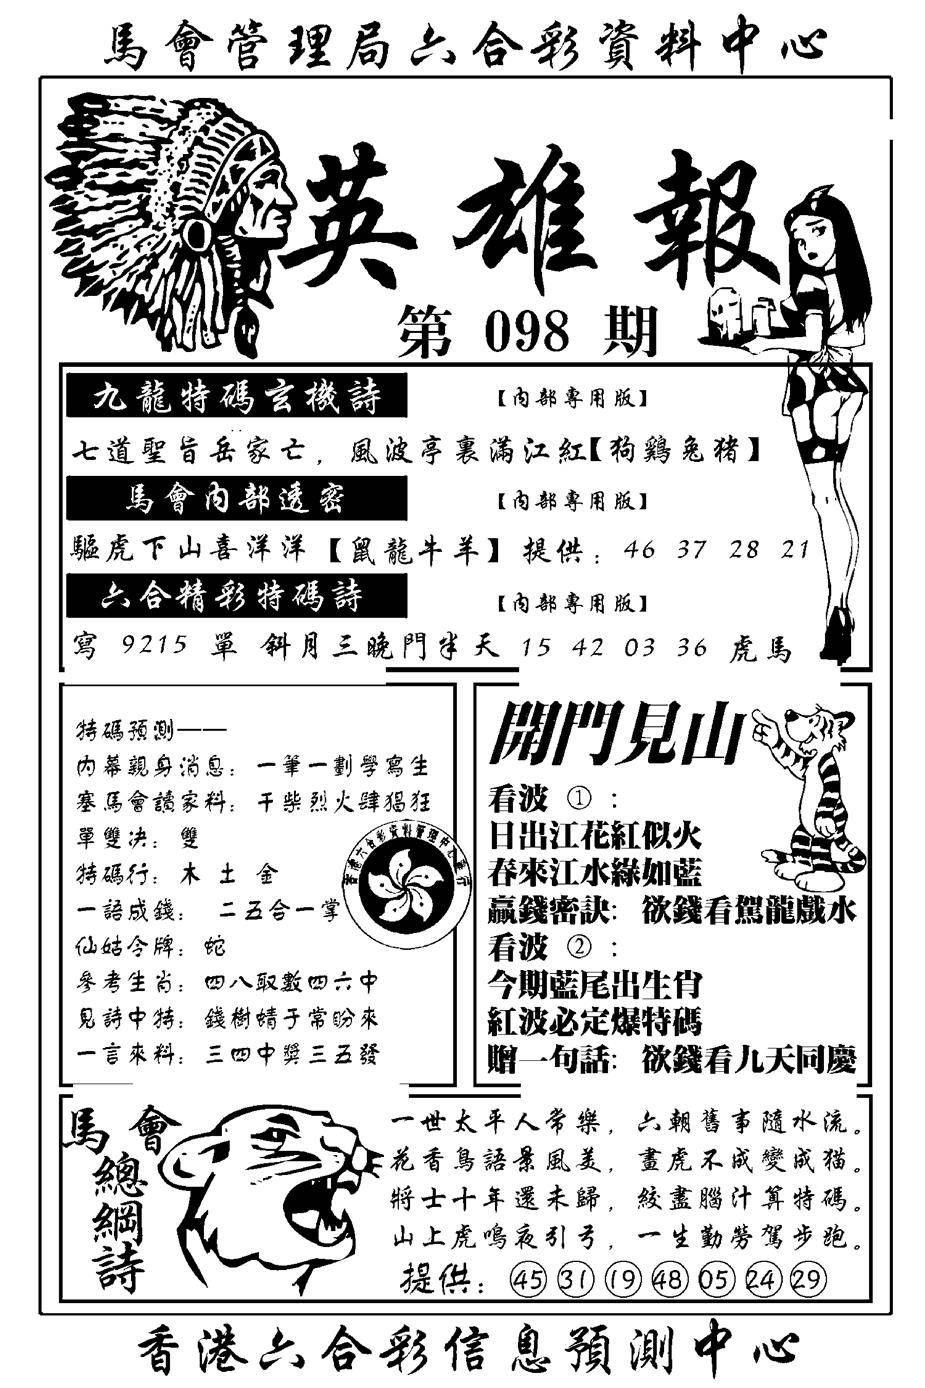 馬會管理局六合彩資料中心
英雄報
第 098 期
九龍特碼玄機詩 【內部專用版】
七道聖旨岳家亡，風波亭裏滿江紅【狗鷄兔猪】
馬會內部透密 【內部專用版】
驅虎下山喜洋洋【鼠龍牛羊】提供：46 37 28 21
六合精彩特碼詩 【內部專用版】
寫 9215 單 斜月三晚門半天 15 42 03 36 虎馬
特碼預測——
內幕親身消息：一筆一劃學寫生
塞馬會讀家料：干柴烈火肆猖狂
單雙决：雙
特碼行：木 土 金
一語成錢： 二五合一掌
仙姑令牌：蛇
參考生肖：四八取數四六中
見詩中特：錢樹蜻于常盼來
一言來料：三四中獎三五發
香港六合彩資料管理中心發行
開門見山
看波 ①：
日出江花紅似火
春來江水綠如藍
贏錢密訣：欲錢看鴛龍戲水
看波 ②：
今期藍尾出生肖
紅波必定爆特碼
贈一句話：欲錢看九天同慶
馬會
總綱詩
一世太平人常樂，六朝舊事隨水流。
花香鳥語景風美，畫虎不成變成猫。
將士十年還未歸，絞盡腦汁算特碼。
山上虎鳴夜引弓，一生勤勞駕步跑。
提供：㊺ ㉛ ⑲ ㊽ 05 ㉔ ㉙
香港六合彩信息預測中心